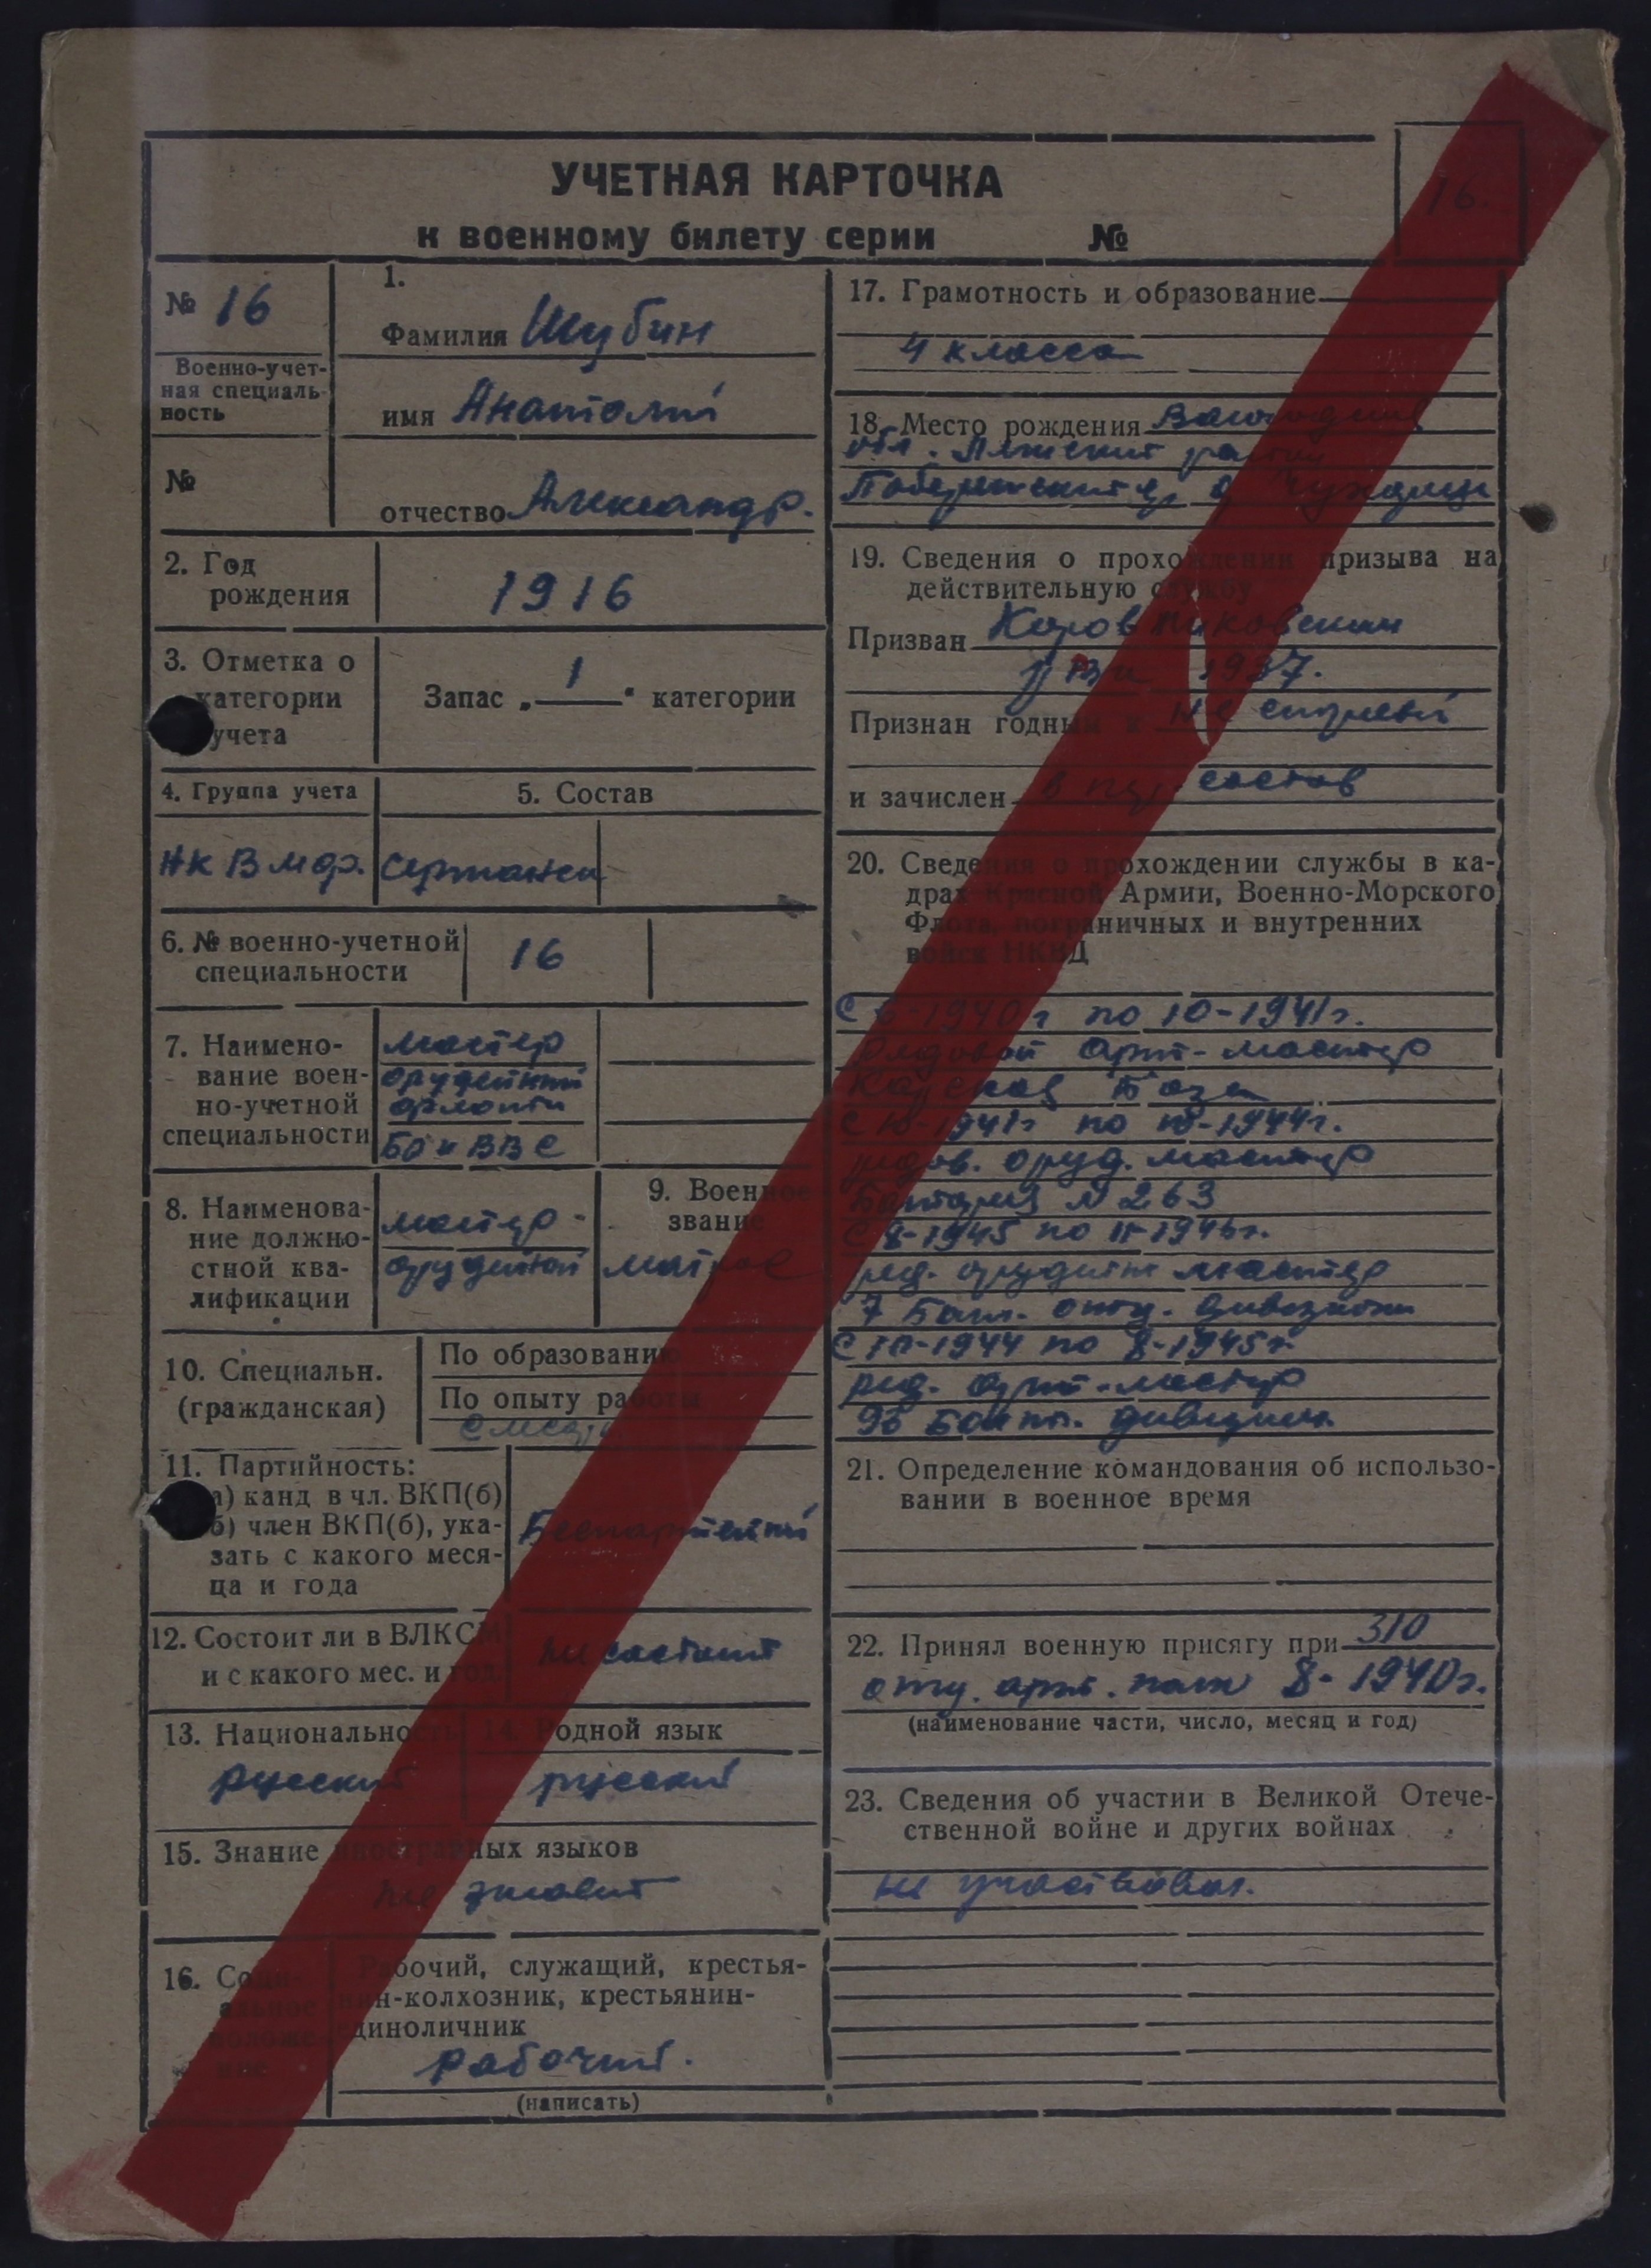 УЧЕТНАЯ КАРТОЧКА
к военному билету серии №
16.
№ 16
Военно-учет-
ная специаль-
ность
№
1.
Фамилия Шубин
имя Анатолий
отчество Александр.
2. Год
рождения
1916
3. Отметка о
категории
учета
Запас „ 1 " категории
4. Группа учета
5. Состав
НК ВМФ.
сержанск
6. № военно-учетной
специальности
16
7. Наимено-
вание воен-
но-учетной
специальности
мастер
орудейный
БО и ВВС
8. Наименова-
ние должно-
стной ква-
лификации
мастер-
орудейный
9. Военное
звание
матрос
10. Специальн.
(гражданская)
По образованию
По опыту работы
11. Партийность:
а) канд в чл. ВКП(б)
б) член ВКП(б), ука-
зать с какого меся-
ца и года
Беспартейный
12. Состоит ли в ВЛКСМ
и с какого мес. и год.
не состоит
13. Национальность
русский
14. Родной язык
русский
15. Знание иностранных языков
не знает
16. Соци-
альное
положе-
ние
Рабочий, служащий, крестья-
нин-колхозник, крестьянин-
единоличник
рабочий.
(написать)
17. Грамотность и образование
4 класса
18. Место рождения
обл.
19. Сведения о прохождении призыва на
действительную службу
Призван Коровниковским
РВК 1937.
Признан годным к не строевой
и зачислен в состав
20. Сведения о прохождении службы в ка-
драх Красной Армии, Военно-Морского
Флота, пограничных и внутренних
войск НКВД
С 6-1940г по 10-1941г.
рядовой арт-мастер
База
С 10-1941г по 10-1944г.
рядов. оруд. мастер
Батарея № 263
С 8-1945 по 11-1946г.
ряд. орудейн мастер
7 Бат. отд. дивизион
С 10-1944 по 8-1945г.
ряд. арт-мастер
дивизион
21. Определение командования об использо-
вании в военное время
22. Принял военную присягу при 310
отд. арт. полк 8-1940г.
(наименование части, число, месяц и год)
23. Сведения об участии в Великой Отече-
ственной войне и других войнах
не участвовал.